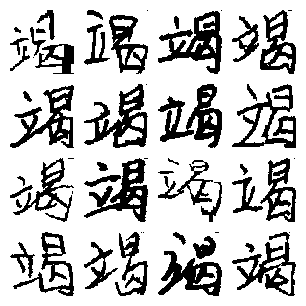 竭竭竭竭
竭竭竭竭
竭竭竭竭
竭竭竭竭